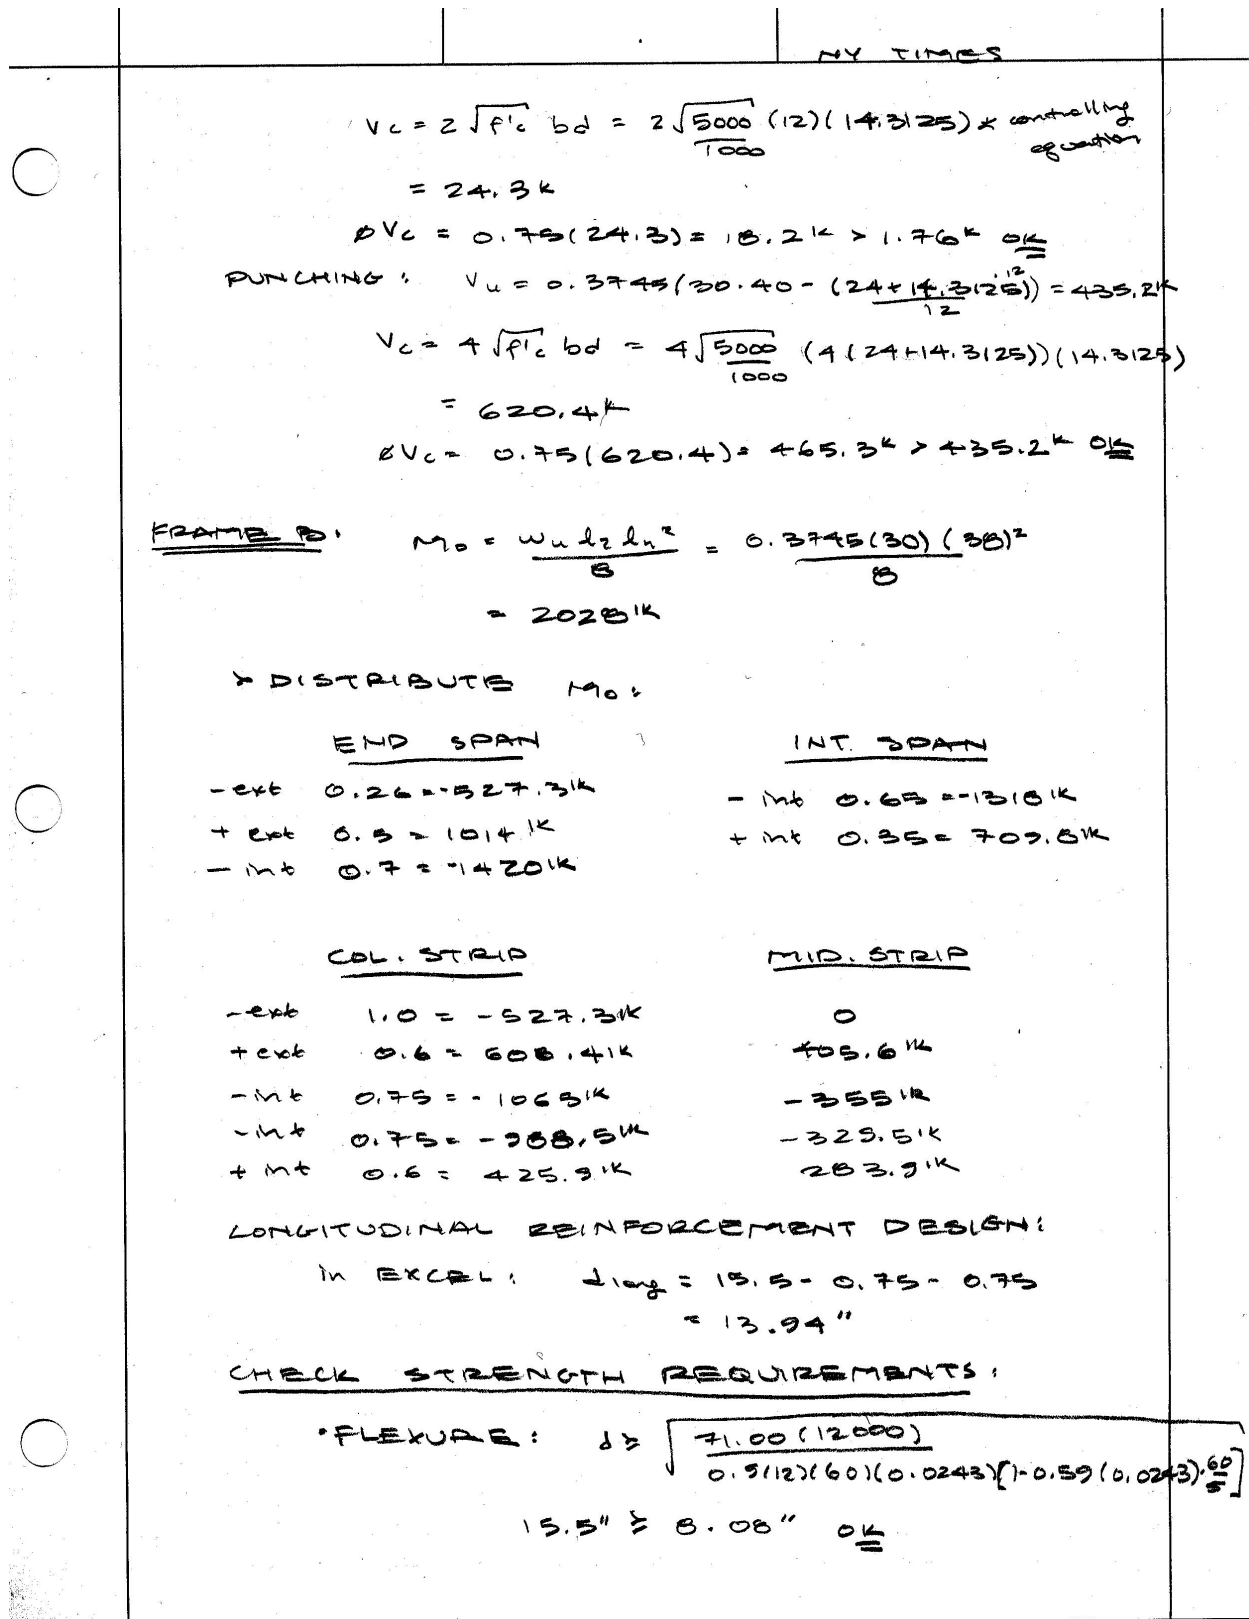 NY TIMES
Vc = 2√f'c bd = 2√5000/1000 (12)(14.3125) * controlling equation
= 24.3k
øVc = 0.75(24.3) = 18.2k > 1.76k OK
PUNCHING: Vu = 0.3745(30·40 - ((24+14.3125)/12)²) = 435.2k
Vc = 4√f'c bd = 4√5000/1000 (4(24+14.3125))(14.3125)
= 620.4k
øVc = 0.75(620.4) = 465.3k > 435.2k OK
FRAME B: Mo = wu l2 ln²/8 = 0.3745(30)(38)²/8
= 2028'k
> DISTRIBUTE Mo:
END SPAN INT. SPAN
-ext 0.26 = -527.3'k - int 0.65 = -1318'k
+ ext 0.5 = 1014'k + int 0.35 = 709.8'k
- int 0.7 = -1420'k
COL. STRIP MID. STRIP
-ext 1.0 = -527.3'k 0
+ ext 0.6 = 608.4'k 405.6'k
-int 0.75 = -1065'k -355'k
-int 0.75 = -988.5'k -329.5'k
+ int 0.6 = 425.9'k 283.9'k
LONGITUDINAL REINFORCEMENT DESIGN:
in EXCEL: dlong = 15.5 - 0.75 - 0.75
= 13.94"
CHECK STRENGTH REQUIREMENTS:
•FLEXURE: d ≥ √71.00(12000)/0.9(12)(60)(0.0243)[1-0.59(0.0243)·60/5]
15.5" ≥ 8.08" OK